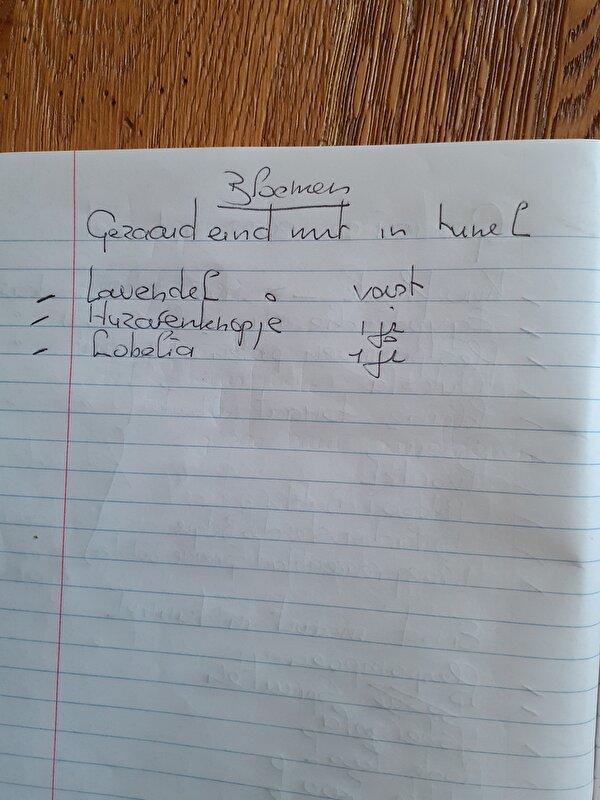 Bloemen
Gezaaid eind mrt in tunel
- Lavendel o vast
- Huzarenknopje 1 jr
- Lobelia 1 jr